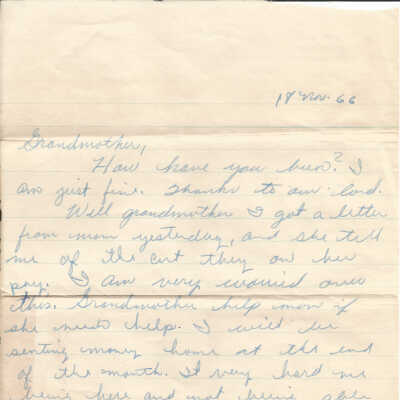 18 Nov. 66
Grandmother,
How have you been? I
am just fine. Thanks to our lord.
Well grandmother I got a letter
from mom yesterday, and she tell
me of the cut they on her
pay. I am very worried over
this. Grandmother help mom if
she needs help. I will be
senting money home at the end
of the month. I very hard me
being here and not being able